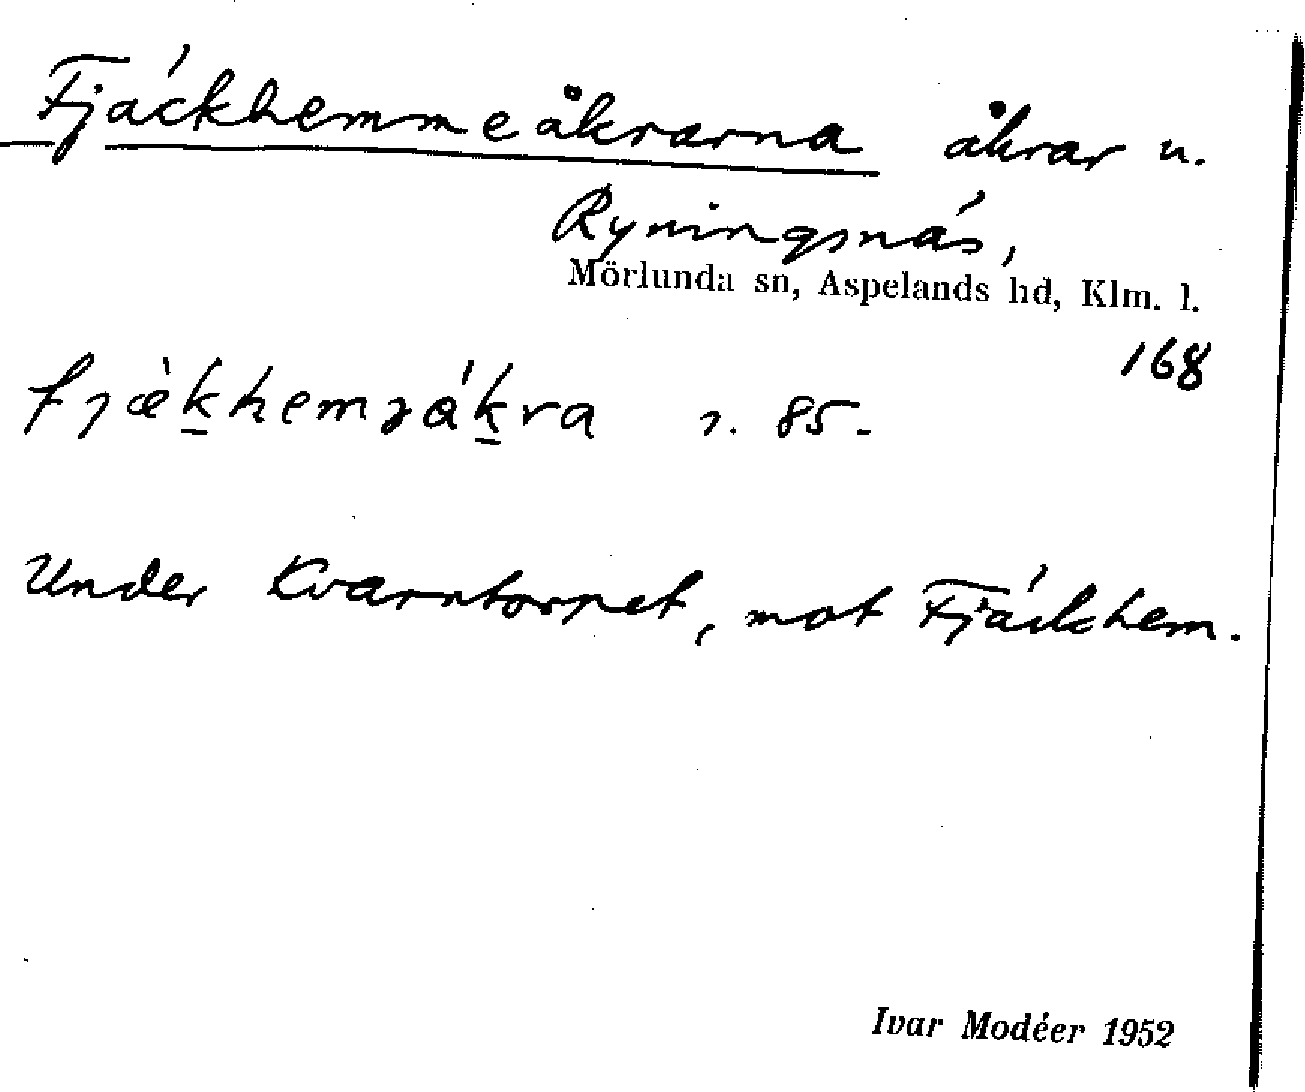 Fjäckhemmeåkrarna åkrar u.
Ryningsnäs,
Mörlunda sn, Aspelands hd, Klm. l.
168
fjæ̀k̠hemɜák̠ra s. 85.
Under Kvarntorpet, mot Fjäckhem.
Ivar Modéer 1952